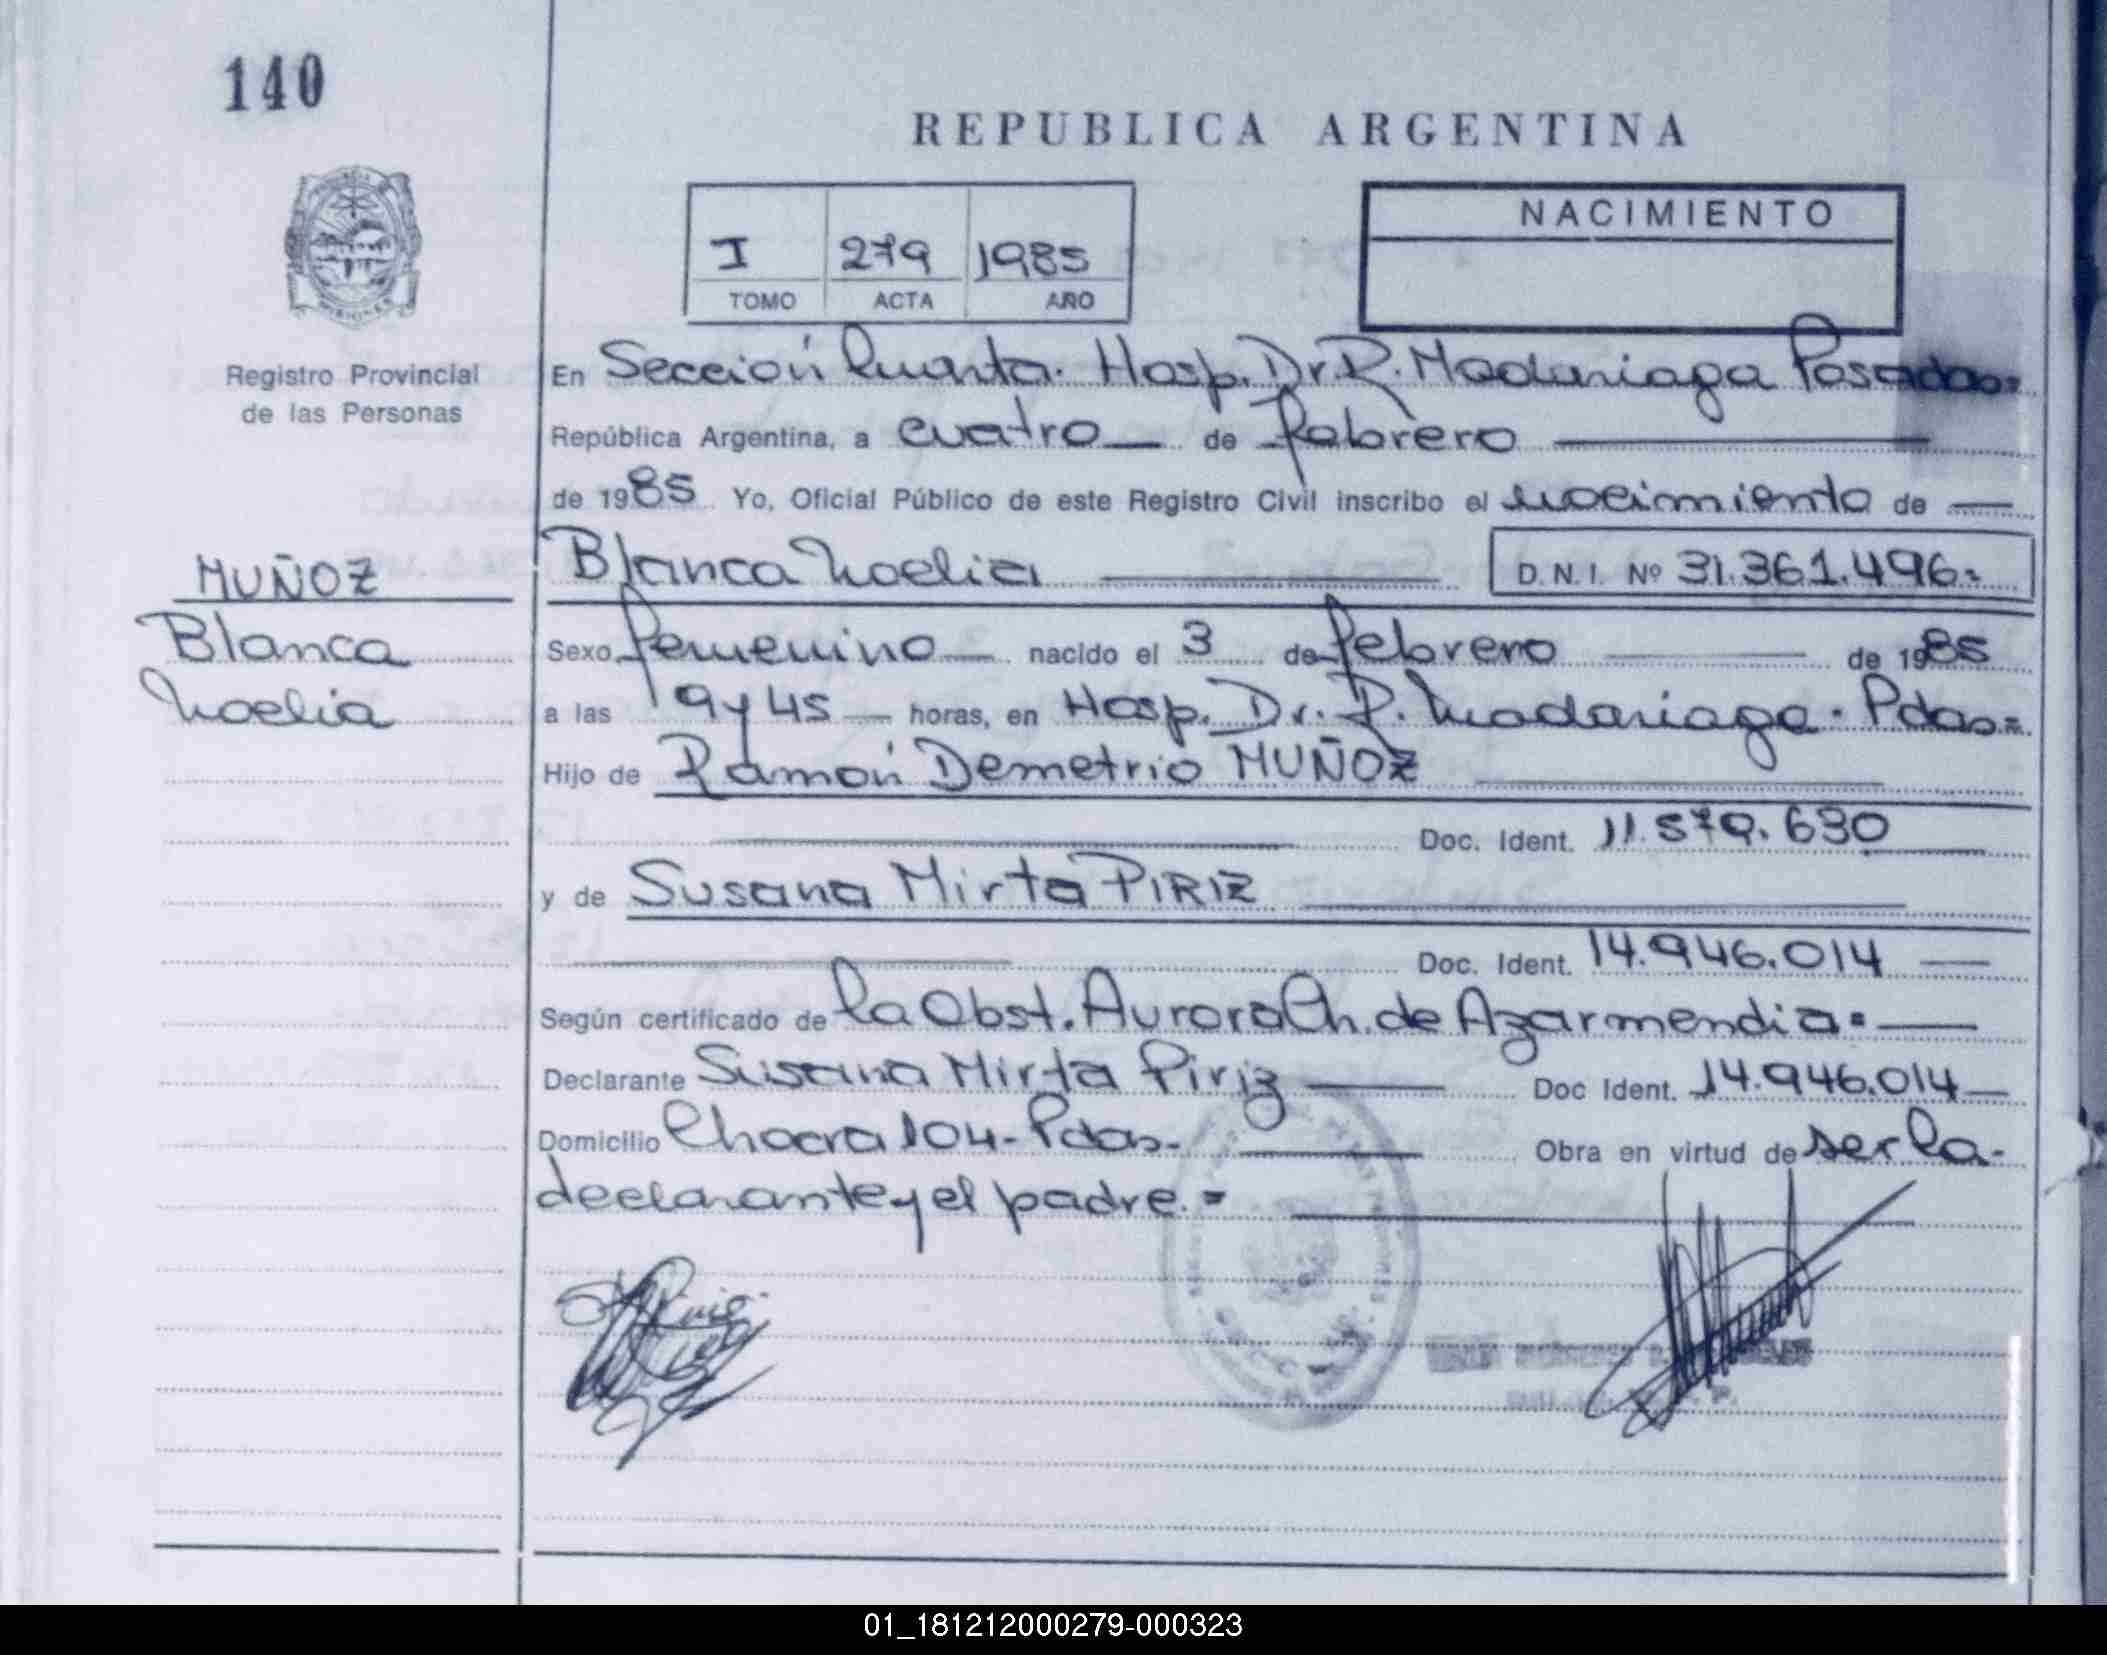 140
REPUBLICA ARGENTINA
I 279 1985
TOMO ACTA AÑO
NACIMIENTO
MISIONES
Registro Provincial
de las Personas
MUÑOZ
Blanca
Noelia
En Sección Cuarta. Hosp. Dr. R. Madariaga Posadas=
República Argentina, a cuatro — de febrero —
de 1985 Yo, Oficial Público de este Registro Civil inscribo el nacimiento de —
Blanca Noelia — D.N.I. Nº 31.361.496=
Sexo femenino — nacido el 3 de febrero — de 1985
a las 19 y 45 — horas, en Hosp. Dr. R. Madariaga. Pdas=
Hijo de Ramón Demetrio MUÑOZ —
— Doc. Ident. 11.579.630 —
y de Susana Mirta PIRIZ —
— Doc. Ident. 14.946.014 —
Según certificado de la Obst. Aurora Ch. de Azarmendia= —
Declarante Susana Mirta Piriz — Doc Ident. 14.946.014 —
Domicilio Chacra 104- Pdas- — Obra en virtud de ser la-
declarante y el padre.= —
01_181212000279-000323